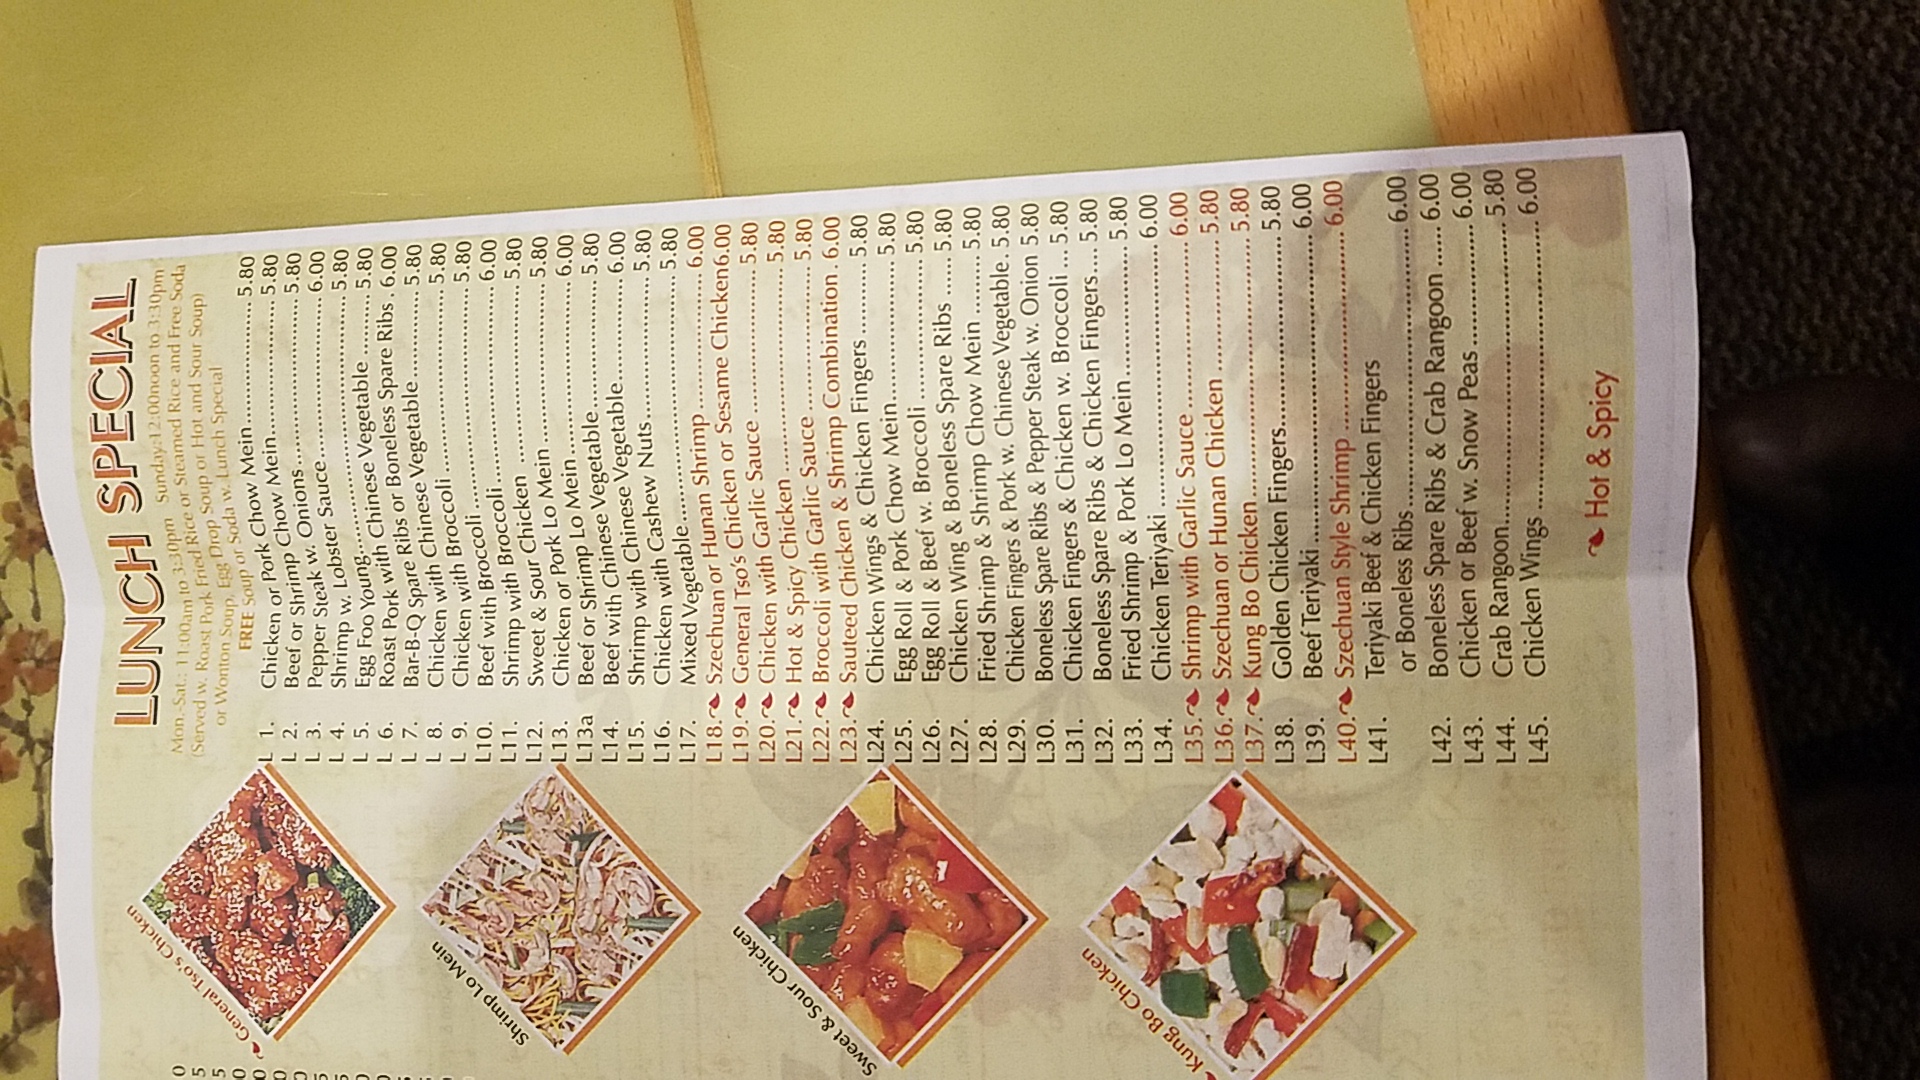 LUNCH SPECIAL
Mon.-Sat.: 11:00am to 3:30pm Sunday:12:00noon to 3:30pm
(Served w. Roast Pork Fried Rice or Steamed Rice and Free Soda
or Wonton Soup, Egg Drop Soup or Hot and Sour Soup)
FREE Soup or Soda w. Lunch Special
L 1. Chicken or Pork Chow Mein 5.80
L 2. Beef or Shrimp Chow Mein 5.80
L 3. Pepper Steak w. Onions 5.80
L 4. Shrimp w. Lobster Sauce 6.00
L 5. Egg Foo Young 5.80
L 6. Roast Pork with Chinese Vegetable 5.80
L 7. Bar-B-Q Spare Ribs or Boneless Spare Ribs 6.00
L 8. Chicken with Chinese Vegetable 5.80
L 9. Chicken with Broccoli 5.80
L10. Beef with Broccoli 5.80
L11. Shrimp with Broccoli 6.00
L12. Sweet & Sour Chicken 5.80
L13. Chicken or Pork Lo Mein 5.80
L13a Beef or Shrimp Lo Mein 6.00
L14. Beef with Chinese Vegetable 5.80
L15. Shrimp with Chinese Vegetable 6.00
L16. Chicken with Cashew Nuts 5.80
L17. Mixed Vegetable 5.80
L18. Szechuan or Hunan Shrimp 6.00
L19. General Tso's Chicken or Sesame Chicken 6.00
L20. Chicken with Garlic Sauce 5.80
L21. Hot & Spicy Chicken 5.80
L22. Broccoli with Garlic Sauce 5.80
L23. Sauteed Chicken & Shrimp Combination 6.00
L24. Chicken Wings & Chicken Fingers 5.80
L25. Egg Roll & Pork Chow Mein 5.80
L26. Egg Roll & Beef w. Broccoli 5.80
L27. Chicken Wing & Boneless Spare Ribs 5.80
L28. Fried Shrimp & Shrimp Chow Mein 5.80
L29. Chicken Fingers & Pork w. Chinese Vegetable 5.80
L30. Boneless Spare Ribs & Pepper Steak w. Onion 5.80
L31. Chicken Fingers & Chicken w. Broccoli 5.80
L32. Boneless Spare Ribs & Chicken Fingers 5.80
L33. Fried Shrimp & Pork Lo Mein 5.80
L34. Chicken Teriyaki 6.00
L35. Shrimp with Garlic Sauce 6.00
L36. Szechuan or Hunan Chicken 5.80
L37. Kung Bo Chicken 5.80
L38. Golden Chicken Fingers 5.80
L39. Beef Teriyaki 6.00
L40. Szechuan Style Shrimp 6.00
L41. Teriyaki Beef & Chicken Fingers
or Boneless Ribs 6.00
L42. Boneless Spare Ribs & Crab Rangoon 6.00
L43. Chicken or Beef w. Snow Peas 6.00
L44. Crab Rangoon 5.80
L45. Chicken Wings 6.00
Hot & Spicy
General Tso's Chicken
Shrimp Lo Mein
Sweet & Sour Chicken
Kung Bo Chicken